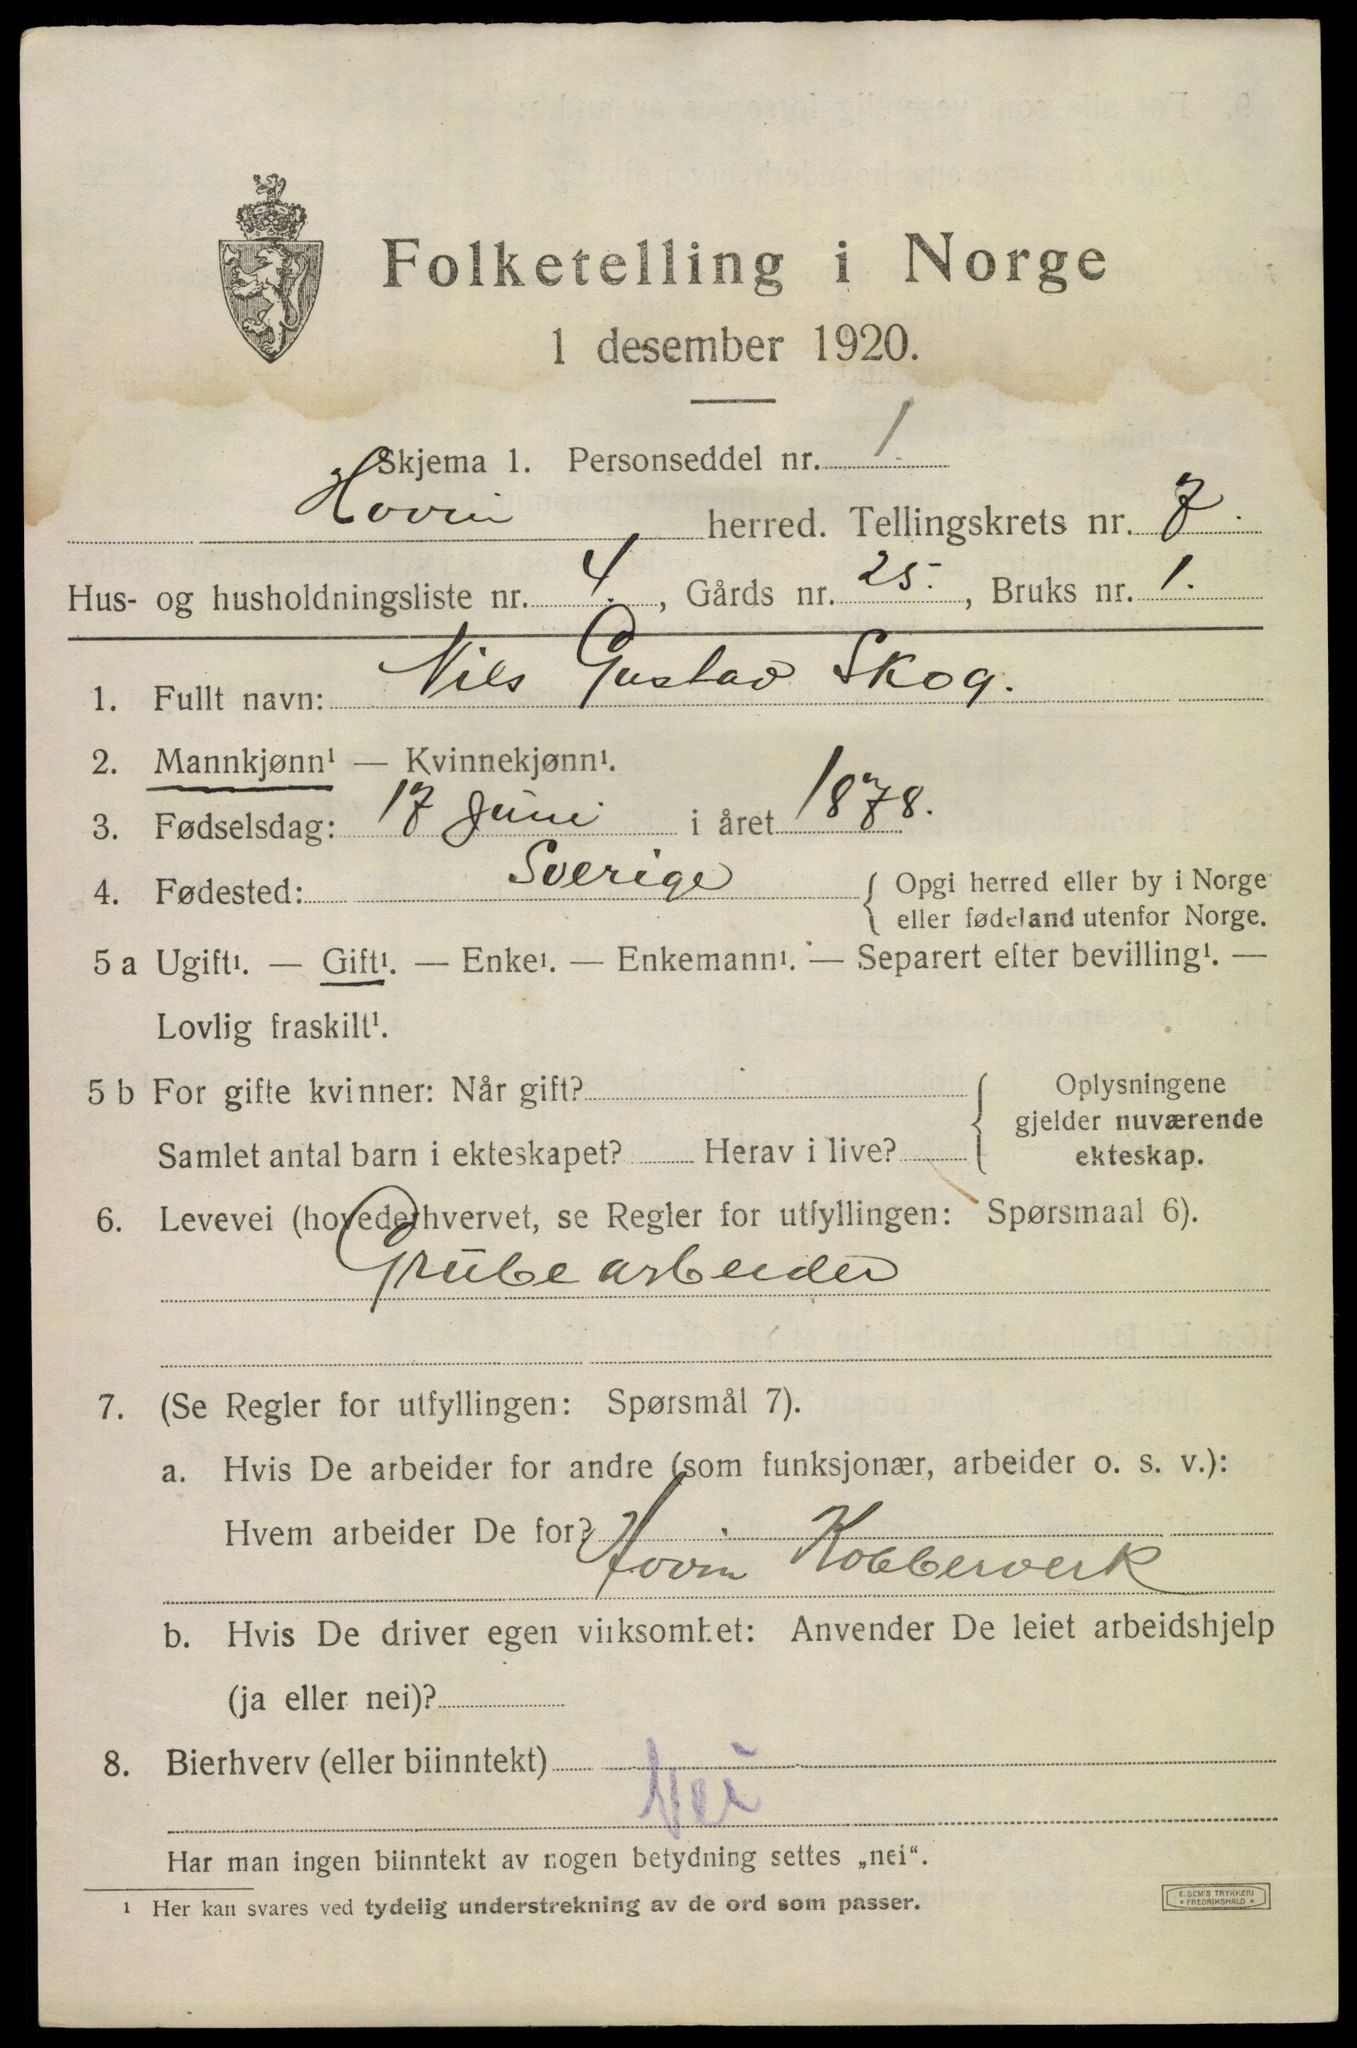 Folketelling i Norge
1 desember 1920.
Skjema 1. Personseddel nr. 1
Hovin herred. Tellingskrets nr. 7.
Hus- og husholdningsliste nr. 4., Gårds nr. 25., Bruks nr. 1.
1. Fullt navn: Nils Gustav Skog.
2. Mannkjønn¹ — Kvinnekjønn¹.
3. Fødselsdag: 17 Juni i året 1878.
4. Fødested: Sverige { Opgi herred eller by i Norge
eller fødeland utenfor Norge.
5 a Ugift¹. — Gift¹. — Enke¹. — Enkemann¹. — Separert efter bevilling¹. —
Lovlig fraskilt¹.
5 b For gifte kvinner: Når gift? { Oplysningene
gjelder nuværende
Samlet antal barn i ekteskapet? Herav i live? ekteskap.
6. Levevei (hovederhvervet, se Regler for utfyllingen: Spørsmaal 6).
Grubearbeider
7. (Se Regler for utfyllingen: Spørsmål 7).
a. Hvis De arbeider for andre (som funksjonær, arbeider o. s. v.):
Hvem arbeider De for?
Hovin Kobberverk
b. Hvis De driver egen virksomhet: Anvender De leiet arbeidshjelp
(ja eller nei)?
8. Bierhverv (eller biinntekt)
Nei
Har man ingen biinntekt av nogen betydning settes „nei“.
¹ Her kan svares ved tydelig understrekning av de ord som passer.
E. SEM'S TRYKKERI
* FREDRIKSHALD *